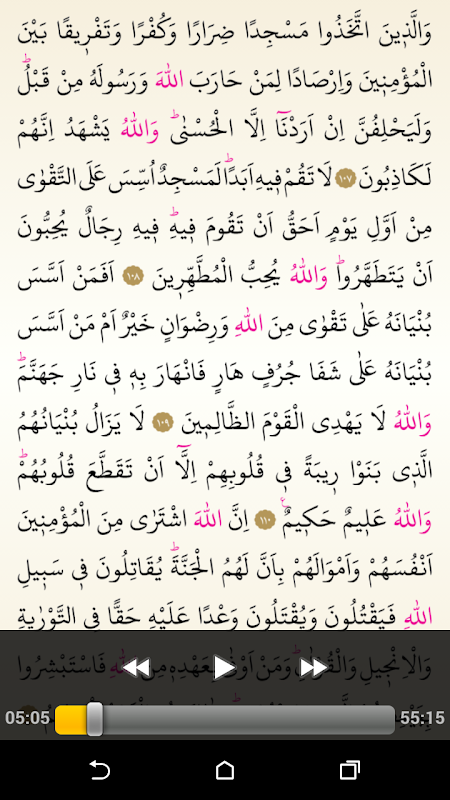 وَالَّذ۪ينَ اتَّخَذُوا مَسْجِدًا ضِرَارًا وَكُفْرًا وَتَفْر۪يقًا بَيْنَ
الْمُؤْمِن۪ينَ وَاِرْصَادًا لِمَنْ حَارَبَ اللّٰهَ وَرَسُولَهُ مِنْ قَبْلُۜ
وَلَيَحْلِفُنَّ اِنْ اَرَدْنَٓا اِلَّا الْحُسْنٰىۜ وَاللّٰهُ يَشْهَدُ اِنَّهُمْ
لَكَاذِبُونَ ﴿١٠٧﴾ لَا تَقُمْ ف۪يهِ اَبَدًاۜ لَمَسْجِدٌ اُسِّسَ عَلَى التَّقْوٰى
مِنْ اَوَّلِ يَوْمٍ اَحَقُّ اَنْ تَقُومَ ف۪يهِۜ ف۪يهِ رِجَالٌ يُحِبُّونَ
اَنْ يَتَطَهَّرُواۜ وَاللّٰهُ يُحِبُّ الْمُطَّهِّر۪ينَ ﴿١٠٨﴾ اَفَمَنْ اَسَّسَ
بُنْيَانَهُ عَلٰى تَقْوٰى مِنَ اللّٰهِ وَرِضْوَانٍ خَيْرٌ اَمْ مَنْ اَسَّسَ
بُنْيَانَهُ عَلٰى شَفَا جُرُفٍ هَارٍ فَانْهَارَ بِه۪ ف۪ي نَارِ جَهَنَّمَۜ
وَاللّٰهُ لَا يَهْدِى الْقَوْمَ الظَّالِم۪ينَ ﴿١٠٩﴾ لَا يَزَالُ بُنْيَانُهُمُ
الَّذ۪ى بَنَوْا ر۪يبَةً ف۪ي قُلُوبِهِمْ اِلَّٓا اَنْ تَقَطَّعَ قُلُوبُهُمْۜ
وَاللّٰهُ عَل۪يمٌ حَك۪يمٌ۟ ﴿١١٠﴾ اِنَّ اللّٰهَ اشْتَرٰى مِنَ الْمُؤْمِن۪ينَ
اَنْفُسَهُمْ وَاَمْوَالَهُمْ بِاَنَّ لَهُمُ الْجَنَّةَۜ يُقَاتِلُونَ ف۪ي سَب۪يلِ
اللّٰهِ فَيَقْتُلُونَ وَيُقْتَلُونَ وَعْدًا عَلَيْهِ حَقًّا فِى التَّوْرٰيةِ
وَالْاِنْج۪يلِ وَالْقُرْاٰنِۜ وَمَنْ اَوْفٰى بِعَهْدِه۪ مِنَ اللّٰهِ فَاسْتَبْشِرُوا
05:05 55:15